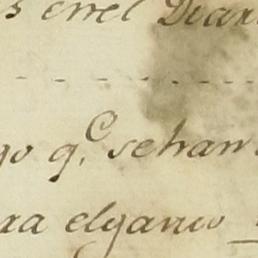 s enel Diari
go q.e sehan
ra elganco